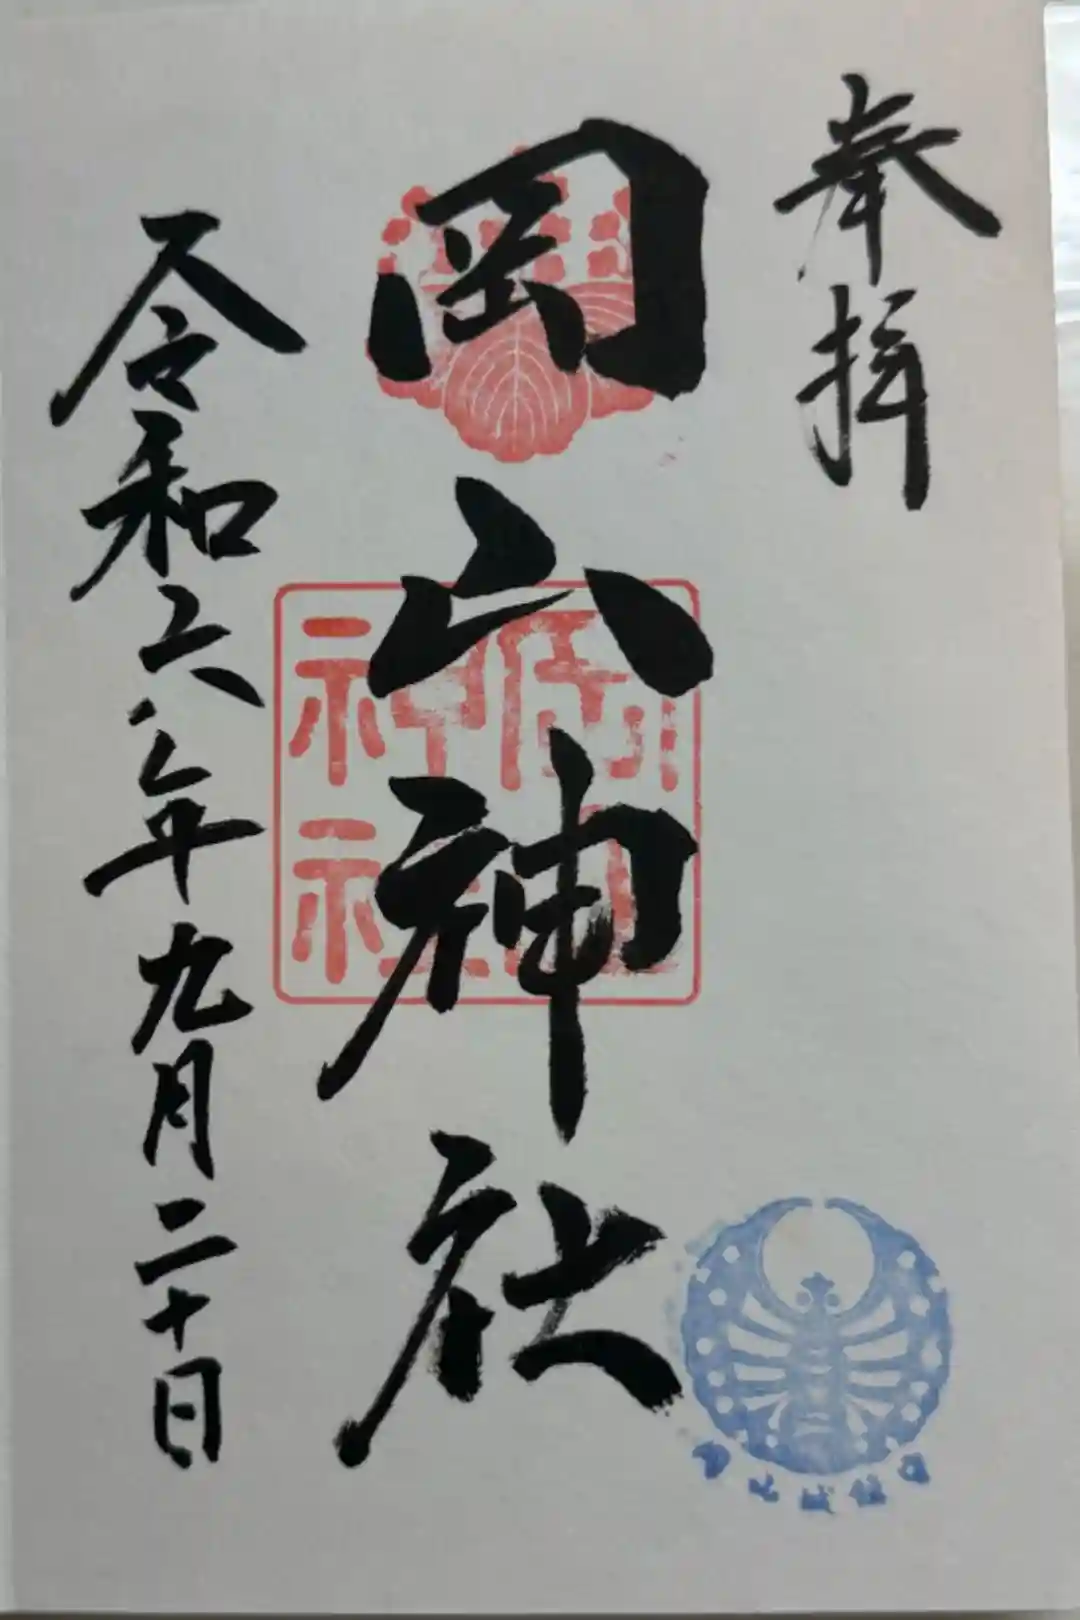 奉拝
岡山神社
岡山
神社
令和六年九月二十日